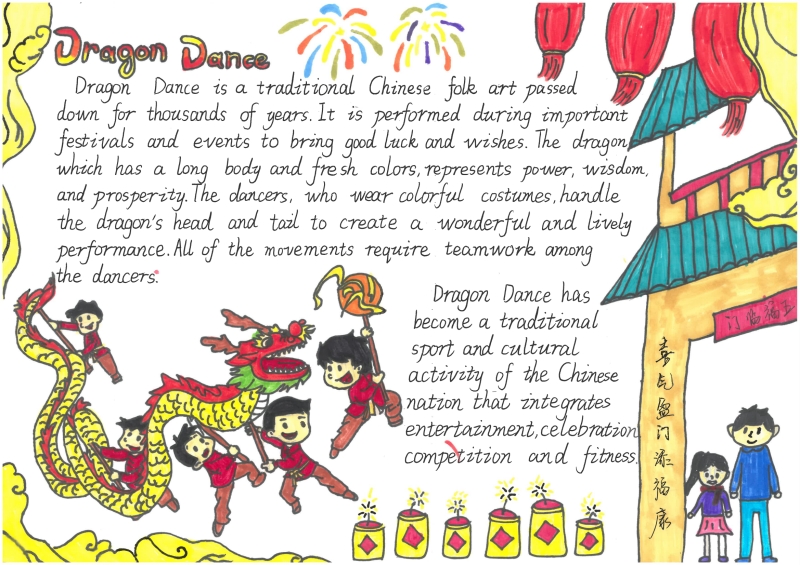 Dragon Dance
Dragon Dance is a traditional Chinese folk art passed
down for thousands of years. It is performed during important
festivals and events to bring good luck and wishes. The dragon,
which has a long body and fresh colors, represents power, wisdom,
and prosperity. The dancers, who wear colorful costumes, handle
the dragon's head and tail to create a wonderful and lively
performance. All of the movements require teamwork among
the dancers.
Dragon Dance has
become a traditional
sport and cultural
activity of the Chinese
nation that integrates
entertainment, celebration
competition and fitness.
门临福五
喜气盈门添福康